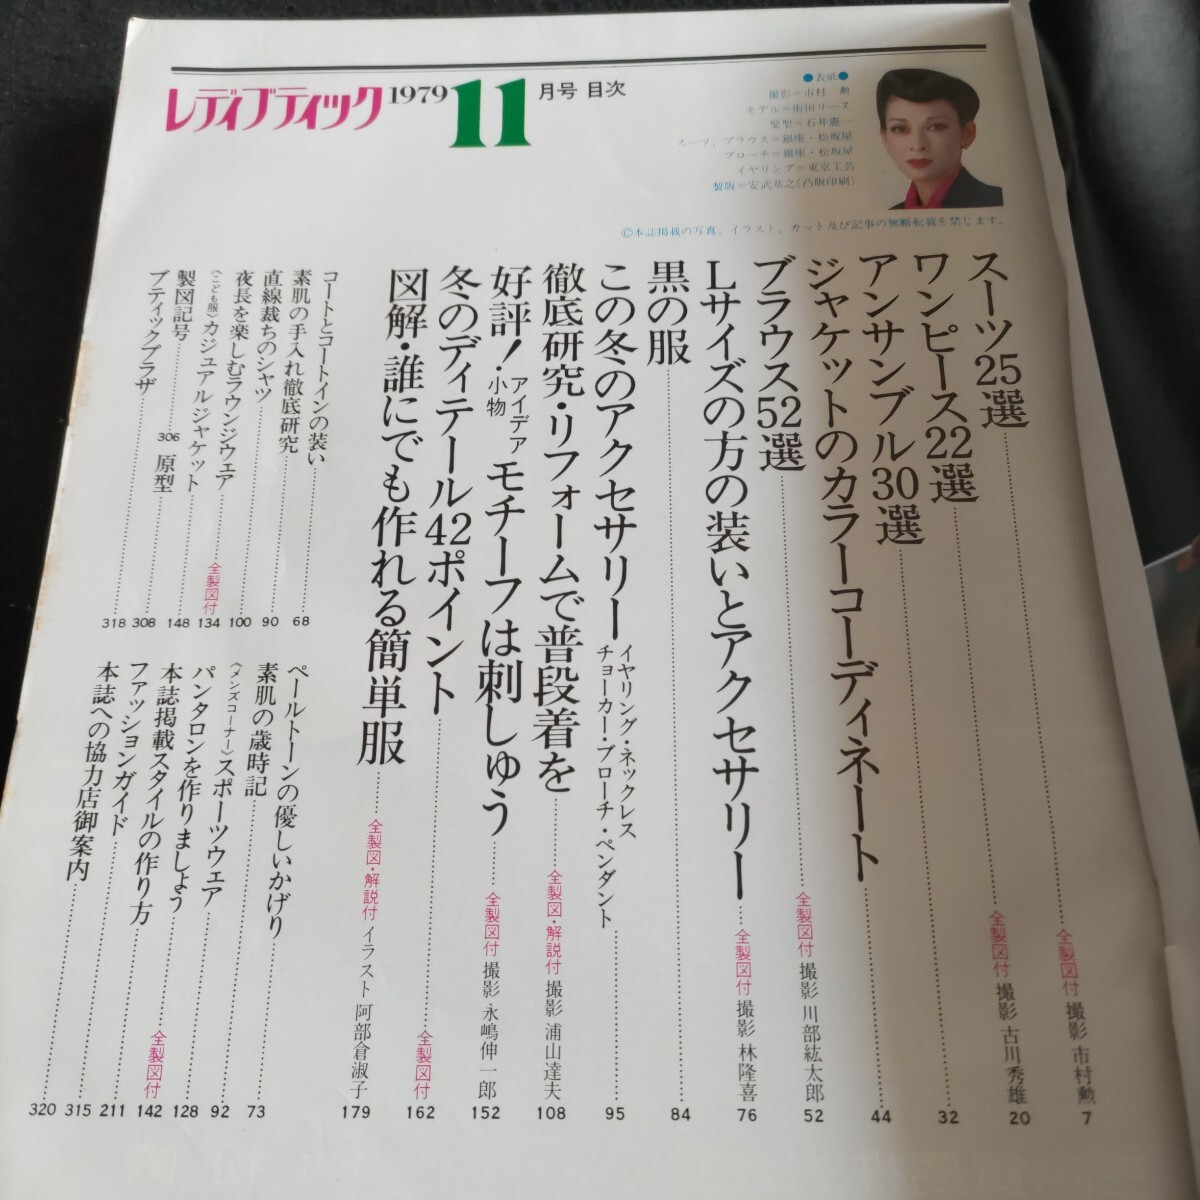 レディブティック 1979 11 月号 目次
●表紙●
撮影＝市村 勲
モデル＝街田リーヌ
髪型＝石井憲一
スーツ、ブラウス＝銀座・松坂屋
ブローチ＝銀座・松坂屋
イヤリング＝東京工芸
製版＝安武基之(凸版印刷)
©本誌掲載の写真、イラスト、カット及び記事の無断転載を禁じます。
スーツ25選 全製図付 撮影 市村勲 7
ワンピース22選 全製図付 撮影 古川秀雄 20
アンサンブル30選 32
ジャケットのカラーコーディネート 44
ブラウス52選 全製図付 撮影 川部紘太郎 52
Lサイズの方の装いとアクセサリー 全製図付 撮影 林隆喜 76
黒の服 84
この冬のアクセサリー イヤリング・ネックレス チョーカー・ブローチ・ペンダント 95
徹底研究・リフォームで普段着を 全製図・解説付 撮影 浦山達夫 108
好評！アイデア小物 モチーフは刺しゅう 全製図付 撮影 永嶋伸一郎 152
冬のディテール42ポイント 全製図付 162
図解・誰にでも作れる簡単服 全製図・解説付 イラスト 阿部倉淑子 179
コートとコートインの装い 68
素肌の手入れ徹底研究 90
直線裁ちのシャツ 100
夜長を楽しむラウンジウェア 全製図付 134
〈こども服〉カジュアルジャケット 148
製図記号 306 原型 308
ブティックプラザ 318
ペールトーンの優しいかげり 73
素肌の歳時記 92
〈メンズコーナー〉スポーツウェア 128
パンタロンを作りましょう 全製図付 142
本誌掲載スタイルの作り方 211
ファッションガイド 315
本誌への協力店御案内 320